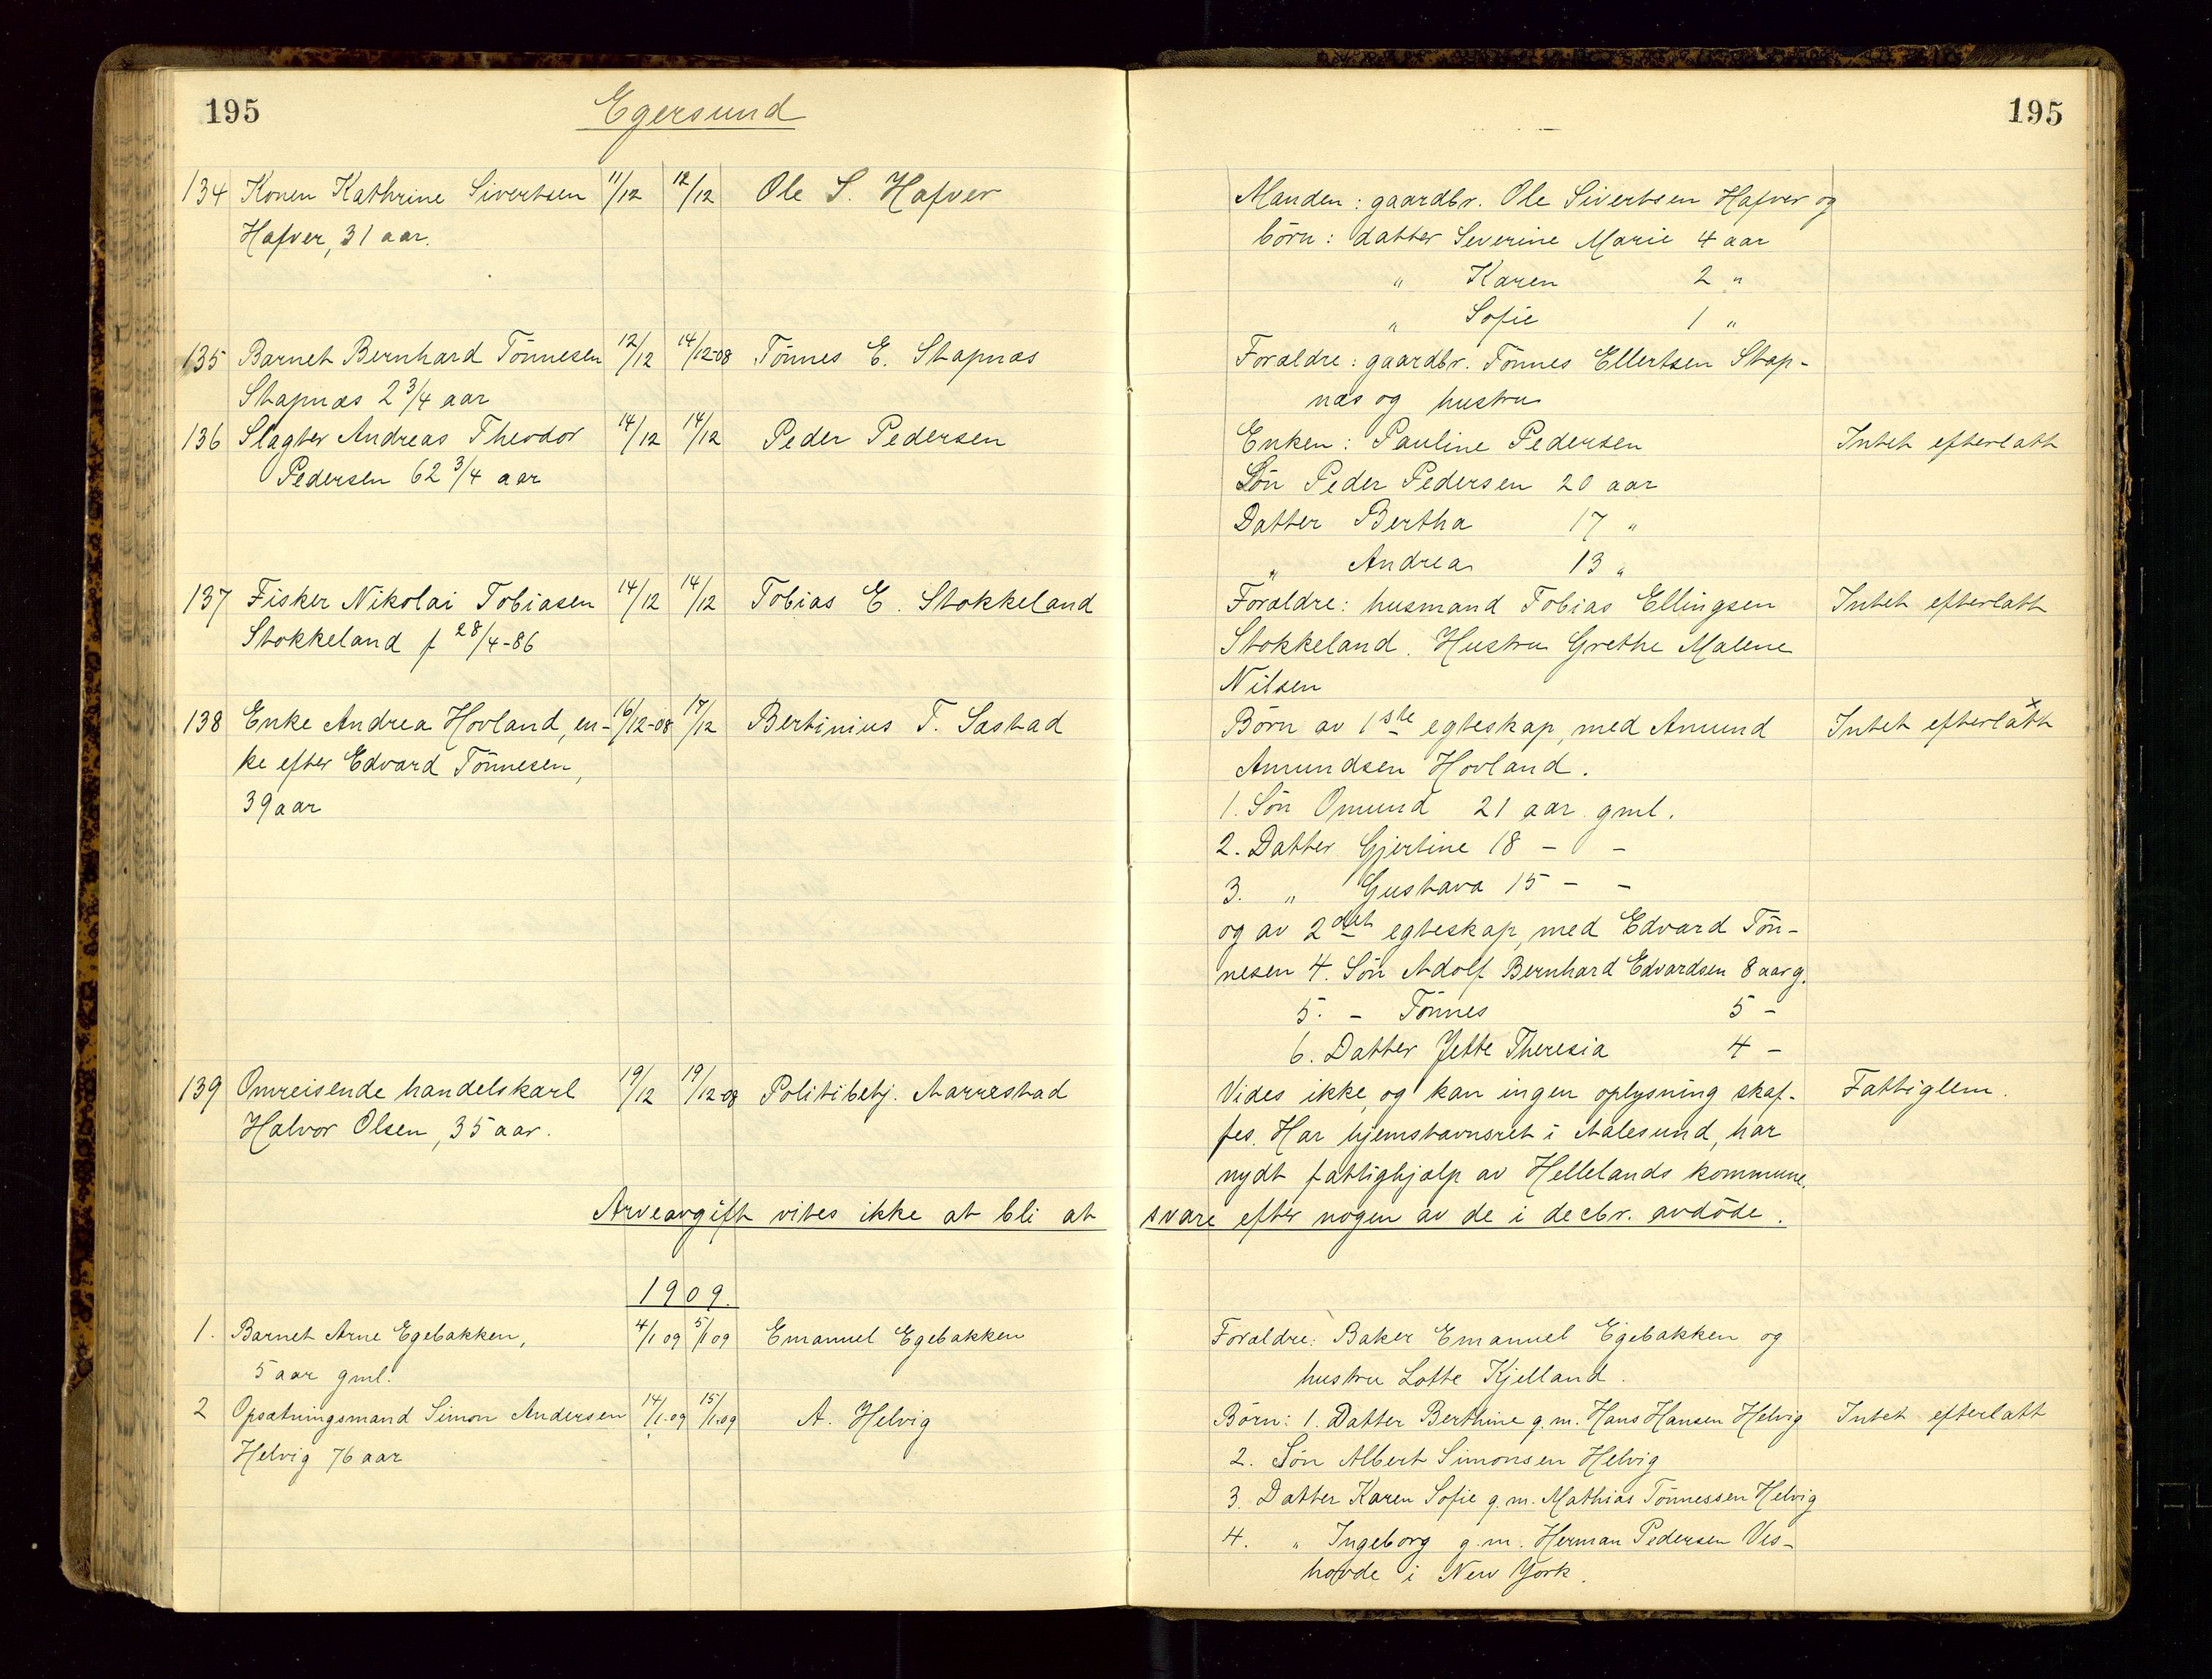 195
Egersund
134 Konen Kathrine Sivertsen 11/12 12/12 Ole S. Hafver
Hafver, 31 aar.
135 Barnet Bernhard Tönnesen 12/12 14/12-08 Tönnes E. Stapnæs
Stapnæs 2 3/4 aar
136 Slagter Andreas Theodor 14/12 14/12 Peder Pedersen
Pedersen 62 3/4 aar
137 Fisker Nikolai Tobiasen 14/12 14/12 Tobias E. Stokkeland
Stokkeland f 28/4-86
138 Enke Andrea Hovland, en- 16/12-08 17/12 Bertinius T. Sæstad
ke efter Edvard Tönnesen,
39 aar
139 Omreisende handelskarl 19/12 19/12-08 Politibetj. Aarrestad
Halvor Olsen, 35 aar.
Arveavgift vites ikke at bli at
1909.
1. Barnet Arne Egebakken, 4/1 09 5/1 09 Emanuel Egebakken
5 aar gml.
2 Opsætningsmand Simon Andersen 14/1.09 15/1.09 A. Helvig
Helvig 76 aar
195
Manden: gaardbr. Ole Sivertsen Hafver og
börn: datter Severine Marie 4 aar
" Karen 2 "
" Sofie 1 "
Forældre: gaardbr. Tönnes Ellertsen Stap-
næs og hustru
Enken: Pauline Pedersen Intet efterlatt
Sön Peder Pedersen 20 aar
Datter Bertha 17 "
" Andrea 13 "
Forældre: husmand Tobias Ellingsen Intet efterlatt
Stokkeland. Hustru Grethe Malene
Nilsen
Börn av 1ste egteskap, med Amund Intet efterlatt x
Amundsen Hovland.
1. Sön Omund 21 aar gml.
2. Datter Gjertine 18 - -
3. " Gustava 15 - -
og av 2det egteskap, med Edvard Tön-
nesen 4. Sön Adolf Bernhard Edvardsen 8 aar g.
5. - Tönnes 5 -
6. Datter Jette Theresia 4 -
Vides ikke, og kan ingen oplysning skaf- Fattiglem.
fes. Har hjemstavnsret i Aalesund, har
nydt fattighjælp av Hellelands kommune.
svare efter nogen av de i decbr. avdöde.
Forældre: Baker Emanuel Egebakken og
hustru Lotte Kjelland.
Börn: 1. Datter Berthine g.m. Hans Hansen Helvig Intet efterlatt
2. Sön Albert Simonsen Helvig
3. Datter Karen Sofie g.m. Mathias Tönnessen Helvig
4. " Ingeborg g.m. Herman Pedersen Ves-
hovde i New York.